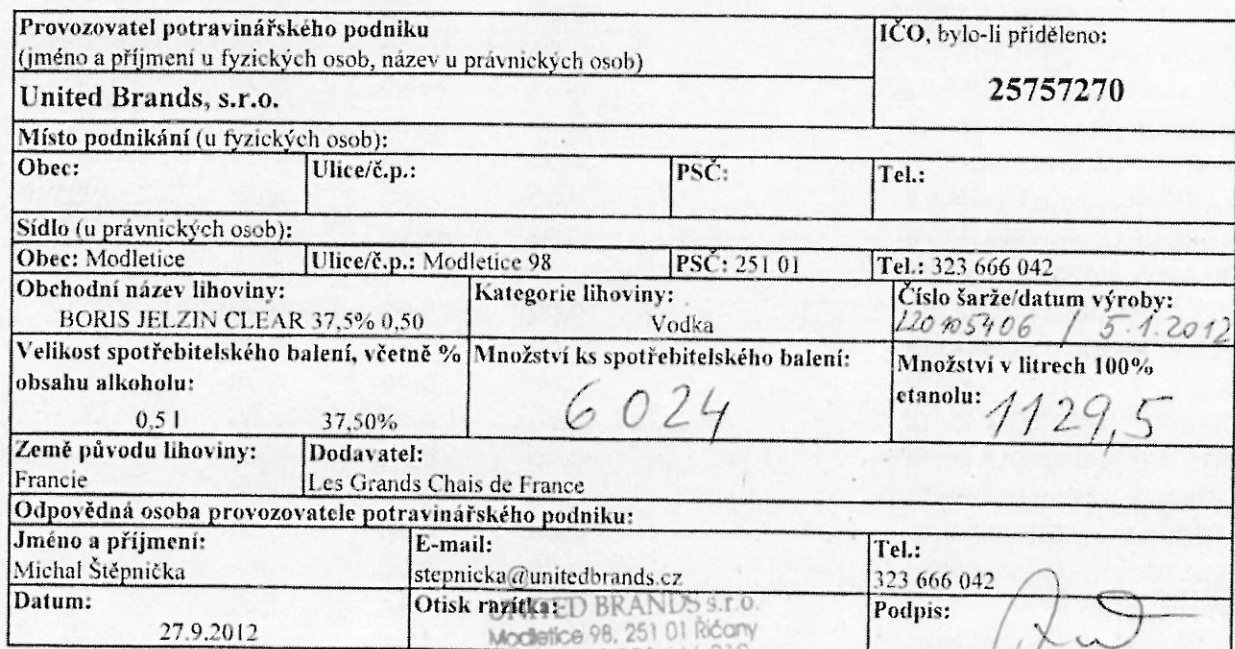 Provozovatel potravinářského podniku
(jméno a příjmení u fyzických osob, název u právnických osob)
United Brands, s.r.o.
IČO, bylo-li přiděleno:
25757270
Místo podnikání (u fyzických osob):
Obec: Ulice/č.p.: PSČ: Tel.:
Sídlo (u právnických osob):
Obec: Modletice Ulice/č.p.: Modletice 98 PSČ: 251 01 Tel.: 323 666 042
Obchodní název lihoviny:
BORIS JELZIN CLEAR 37,5% 0,50
Kategorie lihoviny:
Vodka
Číslo šarže/datum výroby:
/ 5.1.2012
Velikost spotřebitelského balení, včetně %
obsahu alkoholu:
0,5 l 37,50%
Množství ks spotřebitelského balení:
6 024
Množství v litrech 100%
etanolu: 1129,5
Země původu lihoviny:
Francie
Dodavatel:
Les Grands Chais de France
Odpovědná osoba provozovatele potravinářského podniku:
Jméno a příjmení:
Michal Štěpnička
E-mail:
stepnicka@unitedbrands.cz
Tel.:
323 666 042
Datum:
27.9.2012
Otisk razítka:
UNITED BRANDS s.r.o.
Modletice 98, 251 01 Říčany
Podpis: